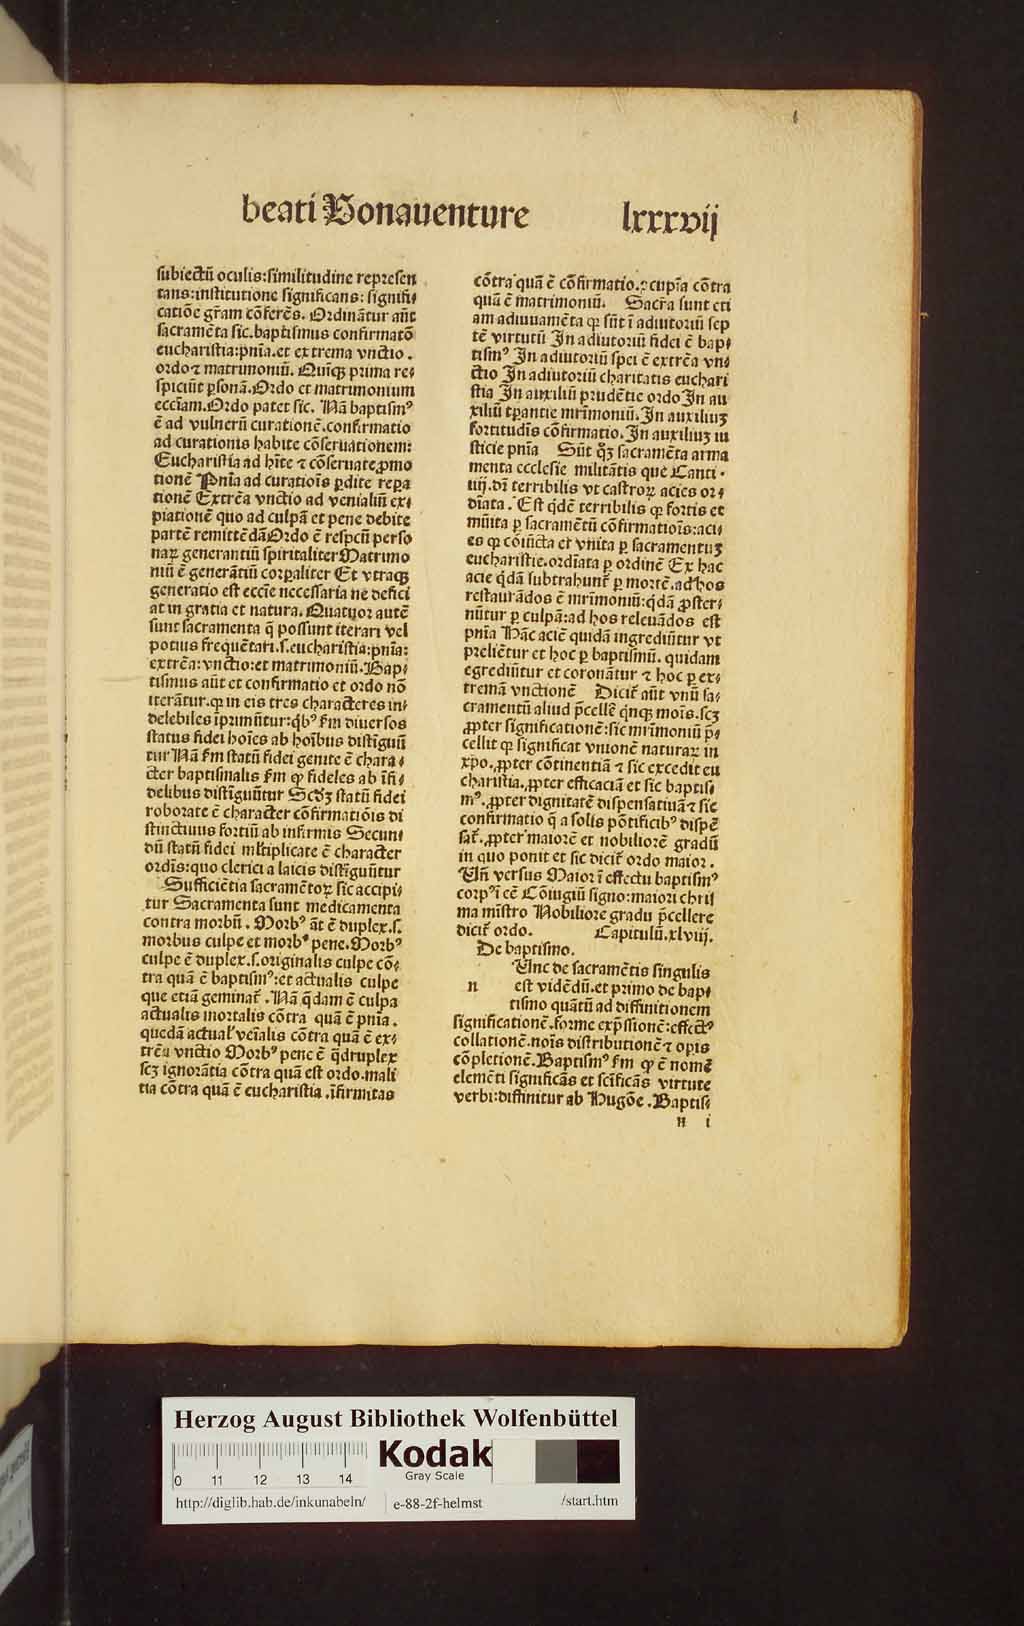 beati Bonauenture lxxxvij
subiectū oculis:similitudine represen
tans:institutione significans: signifi⸗
catiōe gr̄am cōferēs. Ordinātur aūt
sacramēta sic.baptismus confirmatō
eucharistia:pnīa.et extrema vnctio.
ordo ⁊ matrimoniū. Quinqꝫ prima re⸗
spiciūt ꝑsonā.Ordo et matrimonium
eccīam.Ordo patet sic. Nā baptismꝰ
ē ad vulnerū curationē.confirmatio
ad curationis habite cōseruationem:
Eucharistia ad hīte ⁊ cōseruate ꝓmo
tionē Pnīa ad curatiōis ꝑdite reꝑa
tionē Extrēa vnctio ad venialiū ex⸗
piationē quo ad culpā et pene debite
partē remittēdā Ordo ē respcū perso
naꝝ generantiū spiritaliter Matrimo
niū ē generātiū corꝑaliter Et vtraqꝫ
generatio est eccīe necessaria ne defici
at in gratia et natura. Quatuor autē
sunt sacramenta q̄ possunt iterari vel
potius frequētari.s.eucharistia:pnīa:
extrēa:vnctio:et matrimoniū.Bap⸗
tismus aūt et confirmatio et ordo nō
iterātur.qꝛ in eis tres characteres in⸗
delebiles īprimūtur:qͥbꝰ ẜm diuersos
status fidei hoīes ab hoībus distīguū
tur Nā ẜm statū fidei genite ē chara⸗
cter baptismalis ẜm qͦ fideles ab īfi⸗
delibus distīguūtur Scḋꝫ statū fidei
roborate ē character cōfirmatiōis di
stinctiuus fortiū ab infirmis Secun⸗
dū statū fidei mltiplicate ē character
ordīs:quo clerici a laicis distīguūtur
Sufficiētia sacramētoꝝ sic accipi⸗
tur Sacramenta sunt medicamenta
contra morbū. Morbꝰ āt ē duplex.s.
morbus culpe et morbꝰ pene.Morbꝰ
culpe ē duplex.s.originalis culpe cō⸗
tra quā ē baptismꝰ:et actualis culpe
que etiā geminat̄. Nā q̄dam ē culpa
actualis mortalis cōtra quā ē pnīa.
quedā actualꝰ veīalis cōtra quā ē ex⸗
trēa vnctio Morbꝰ pene ē q̄druplex
scꝫ ignorātia cōtra quā est ordo.mali
tia cōtra quā ē eucharistia.īfirmitas
cōtra quā ē cōfirmatio.ꝯcupīa cōtra
quā ē matrimoniū. Sacr̄a sunt eti
am adiuuamēta qꝛ sūt ī adiutoriū sep
tē virtutū In adiutoriū fidei ē bap⸗
tismꝰ In adiutoriū spei ē extrēa vn⸗
ctio In adiutoriū charitatis euchari
stia In auxiliū prudētie ordo In au
xiliū tꝑantie mr̄imoniū.In auxiliuꝫ
fortitudīs cōfirmatio.In auxiliuꝫ iu
sticie pnīa Sūt qͦꝫ sacramēta arma
menta ecclesie militātis que Canti⸗
iiij.dr̄ terribilis vt castroꝝ acies or⸗
dīata. Est qͥdē terribilis qꝛ fortis et
mūita ꝑ sacramētū cōfirmatiōis:aci⸗
es qꝛ cōiūcta et vnita ꝑ sacramentuꝫ
eucharistie.ordīata ꝑ ordinē Ex hac
acie qͥdā subtrahunt̄ ꝑ mortē.ad hos
restaurādos ē mr̄imoniū:qͥdā ꝓster⸗
nūtur ꝑ culpā:ad hos releuādos est
pnīa Hāc aciē quidā ingrediūtur vt
prelientur et hoc ꝑ baptismū. quidam
egrediūtur et coronātur ⁊ hoc ꝑ ex⸗
tremā vnctionē Dicit̄ aūt vnū sa⸗
cramentū aliud p̄cellē qͥnqꝫ moīs.scꝫ
ꝓpter significationē:sic mr̄imoniū p̄⸗
cellit qꝛ significat vnionē naturaꝝ in
xp̄o.ꝓpter cōtinentiā ⁊ sic excedit eu
charistia.ꝓpter efficaciā et sic baptis⸗
mꝰ.ꝓpter dignitatē dispensatiuā ⁊ sic
confirmatio q̄ a solis pōtificibꝰ dispē
sat̄.ꝓpter maiorē et nobiliorē gradū
in quo ponit et sic dicit̄ ordo maior.
Vn̄ versus Maior ī effectu baptismꝰ
corpꝰ ī eē Cōiugiū signo:maiori chris
ma mīstro Nobiliore gradu p̄cellere
dicit̄ ordo. Capitulū.xlviij.
De baptismo.
Vnc de sacramētis singulis
n est vidēdū.et primo de bap⸗
tismo quātū ad diffinitionem
significationē.forme exp̄ssionē:effectꝰ
collationē.noīs distributionē ⁊ opis
cōpletionē.Baptismꝰ ẜm qͦ ē nomē
elemēti significās et sc̄ificās virtute
verbi:diffinitur ab Hugōe.Baptis⸗
n i
Herzog August Bibliothek Wolfenbüttel
Kodak
Gray Scale
0 11 12 13 14
http://diglib.hab.de/inkunabeln/ e-88-2f-helmst /start.htm